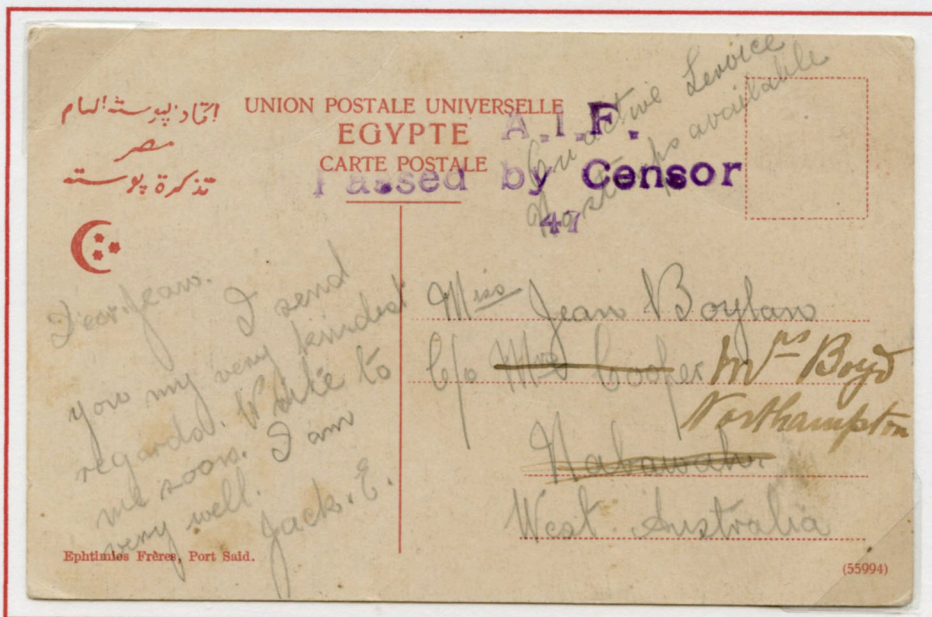 اتحاد پوسته العام
مصر
تذكرة پوسته
UNION POSTALE UNIVERSELLE
EGYPTE
CARTE POSTALE
On Active Service
No stamps available
A.I.F.
Passed by Censor
47
Dear Jean.
I send
you my very kindest
regards. Write to
me soon. I am
very well.
Jack. E.
Miss Jean Boylan
C/o Mrs Cooper Mrs Boyd
Northampton
Nabawah.
West Australia
Ephtimios Frères, Port Said.
(55994)